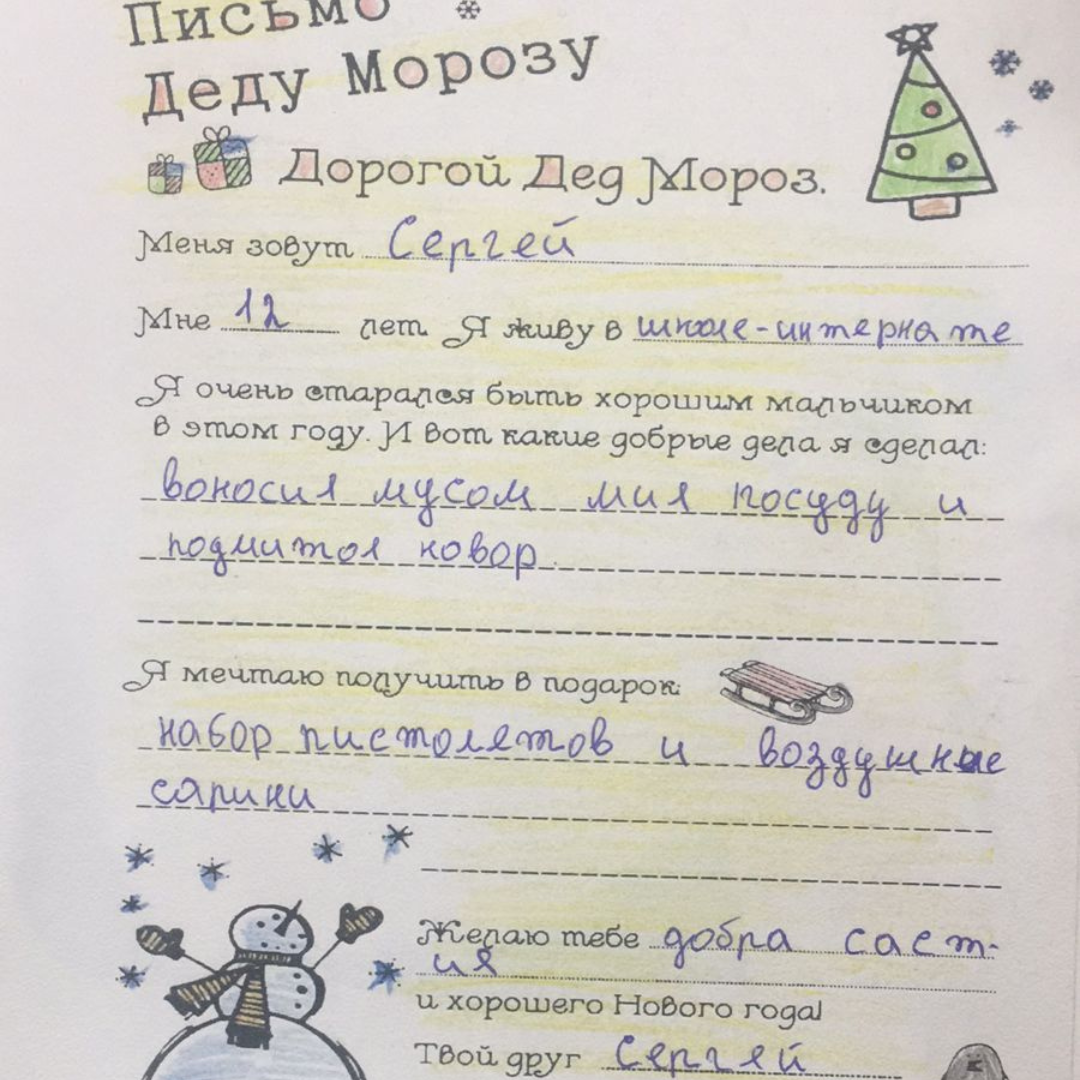 Письмо
Деду Морозу
Дорогой Дед Мороз.
Меня зовут Сергей
Мне 12 лет. Я живу в школе-интернате
Я очень старался быть хорошим мальчиком
в этом году. И вот какие добрые дела я сделал:
воносил мусом мил посуду и
подмитол ковор
Я мечтаю получить в подарок:
набор пистолетов и воздушные
сарики
Желаю тебе добра саст-
ия
и хорошего Нового года!
Твой друг Сергей